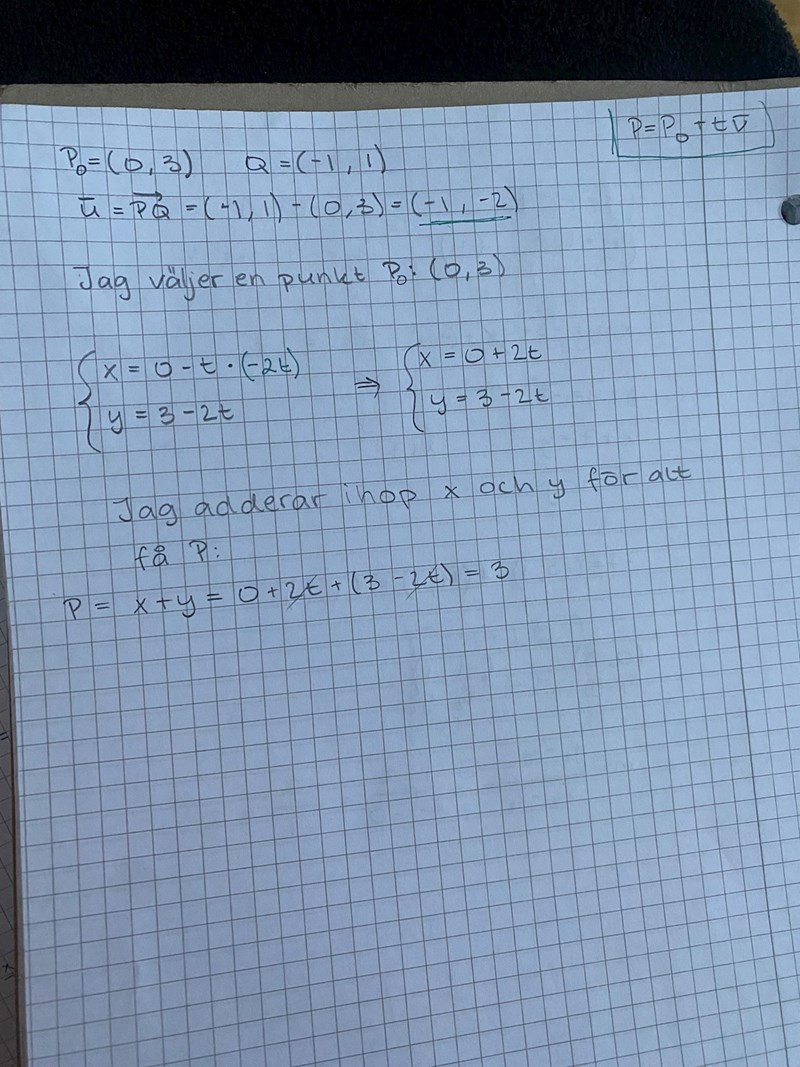 P = P₀ + t v̄
P₀ = (0, 3) Q = (-1, 1)
ū = P⃗Q⃗ = (-1, 1) - (0, 3) = (-1, -2)
Jag väljer en punkt P₀: (0, 3)
{ x = 0 - t · (-2t) ⇒ { x = 0 + 2t
{ y = 3 - 2t { y = 3 - 2t
Jag adderar ihop x och y för att
få P:
P = x + y = 0 + 2t + (3 - 2t) = 3